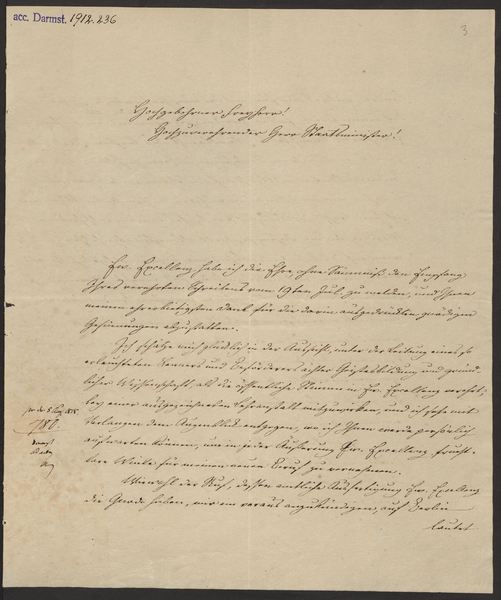 acc. Darmst. 1912.236
3
Hochgebohrner Freyherr!
Hochzuverehrender Herr Staatsminister!
Ew. Excellenz habe ich die Ehre, ohne Säumniß den Empfang
Ihres verehrten Schreibens vom 19ten Jul. zu melden, und Ihnen
meinen ehrerbietigsten Dank für die darin ausgedrückten gnädigen
Gesinnungen abzustatten.
Ich schätze mich glücklich in der Aussicht, unter der Leitung eines so
erleuchteten Kenners und Beförderers ächter Geistesbildung und gründ-
licher Wissenschaft, als die öffentliche Stimme in Ew. Excellenz verehrt,
bey einer ausgezeichneten Lehranstalt mitzuwirken, und ich sehe mit
Verlangen dem Augenblick entgegen, wo ich Ihnen werde persönlich
aufwarten können, um in jeder Äußerung Ew. Excellenz frucht-
bare Winke für meinen neuen Beruf zu vernehmen.
Wiewohl der Ruf, dessen amtliche Ausfertigung Ew. Excellenz
die Gnade haben, mir im voraus anzukündigen, auf Berlin
lautet